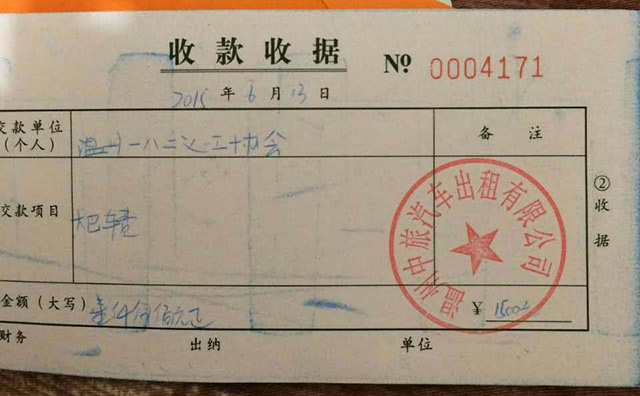 收款收据 № 0004171
2015 年 6 月 13 日
交款单位
(个人)
温州一八二义工协会
备 注
交款项目
大巴车费
温州中旅汽车出租有限公司
② 收 据
金额(大写)
壹仟伍佰元正
¥ 1500
财务 出纳 单位